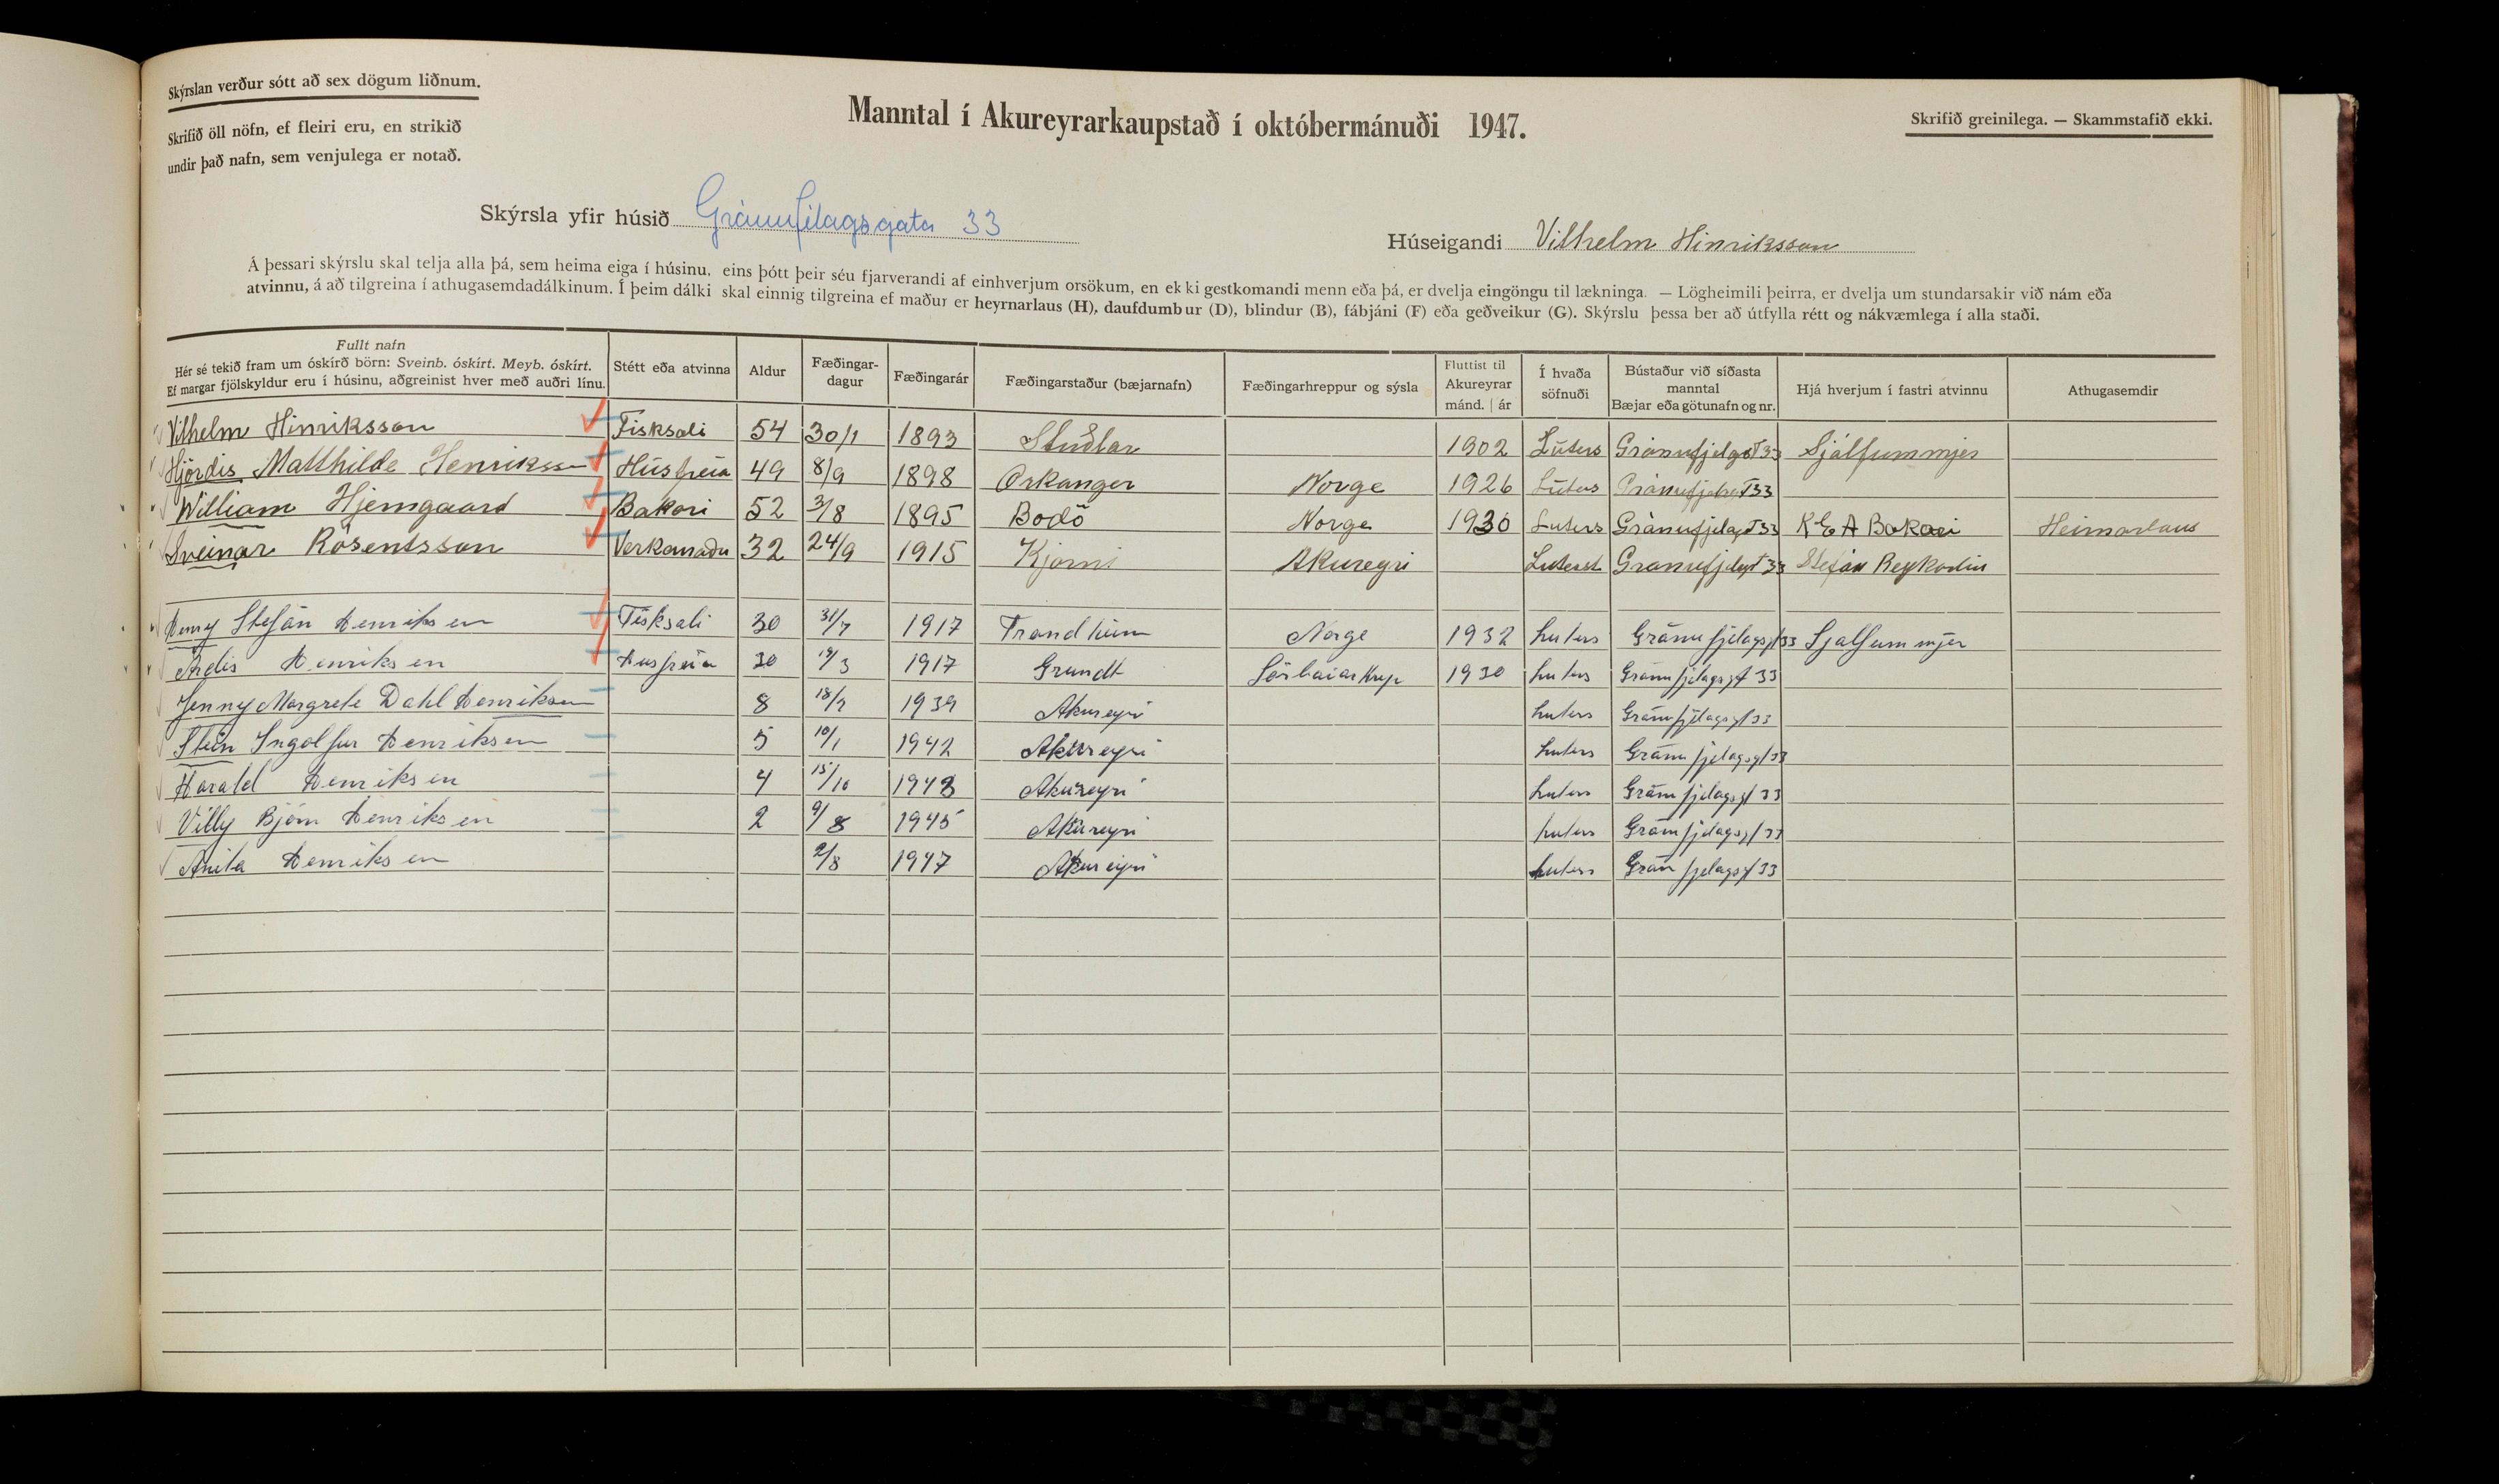 Skýrslan verður sótt að sex dögum liðnum.
Skrifið öll nöfn, ef fleiri eru, en strikið
undir það nafn, sem venjulega er notað.
Manntal í Akureyrarkaupstað í októbermánuði 1947.
Skrifið greinilega. — Skammstafið ekki.
Skýrsla yfir húsið Gránufélagsgata 33
Húseigandi Vilhelm Hinriksson
Á þessari skýrslu skal telja alla þá, sem heima eiga í húsinu, eins þótt þeir séu fjarverandi af einhverjum orsökum, en ekki gestkomandi menn eða þá, er dvelja eingöngu til lækninga. — Lögheimili þeirra, er dvelja um stundarsakir við nám eða
atvinnu, á að tilgreina í athugasemdadálkinum. Í þeim dálki skal einnig tilgreina ef maður er heyrnarlaus (H), daufdumbur (D), blindur (B), fábjáni (F) eða geðveikur (G). Skýrslu þessa ber að útfylla rétt og nákvæmlega í alla staði.
Fullt nafn
Hér sé tekið fram um óskírð börn: Sveinb. óskírt. Meyb. óskírt.
Ef margar fjölskyldur eru í húsinu, aðgreinist hver með auðri línu.
Stétt eða atvinna
Aldur
Fæðingar-
dagur
Fæðingarár
Fæðingarstaður (bæjarnafn)
Fæðingarhreppur og sýsla
Fluttist til
Akureyrar
mánd. | ár
Í hvaða
söfnuði
Bústaður við síðasta
manntal
Bæjar eða götunafn og nr.
Hjá hverjum í fastri atvinnu
Athugasemdir
Vilhelm Hinriksson Fisksali 54 30/1 1893 Stuðlar 1902 Lúters Gránufjelgst 33 Sjálfum mjer
Hjördis Matthilde Henriksson Húsfreia 49 8/9 1898 Orkanger Norge 1926 Lúters Gránufjelagst 33
William Hjemgaard Bakari 52 3/8 1895 Bodö Norge 1930 Luters Gránufjelagst 33 K E A Bakari Heimarlaus
Sveinar Rósentsson Verkamaðu 32 24/9 1915 Kjarni Akureyri Luterst Granufjelagst 33 Stefán Reykadin
Henry Stefán Henriksen Fisksali 30 31/7 1917 Trandheim Norge 1932 Luters Gránufjelagsgt 33 Sjalfum mjer
Ardis Henriksen Husfreia 30 19/3 1917 Grundt 1930 Luters Gránufjelagsgt 33
Jenny Margrete Dahl Henriksen 8 18/7 1939 Akureyri Luters Gránufjelagsgt 33
Stein Ingolfur Henriksen 5 10/1 1942 Akureyri Luters Gránufjelagsgt 33
Harald Henriksen 4 15/10 1943 Akureyri Luters Gránufjelagsgt 33
Villy Björn Henriksen 2 9/8 1945 Akureyri Luters Gránufjelagsgt 33
Anita Henriksen 2/8 1947 Akureyri Luters Gránfjelagsgt 33